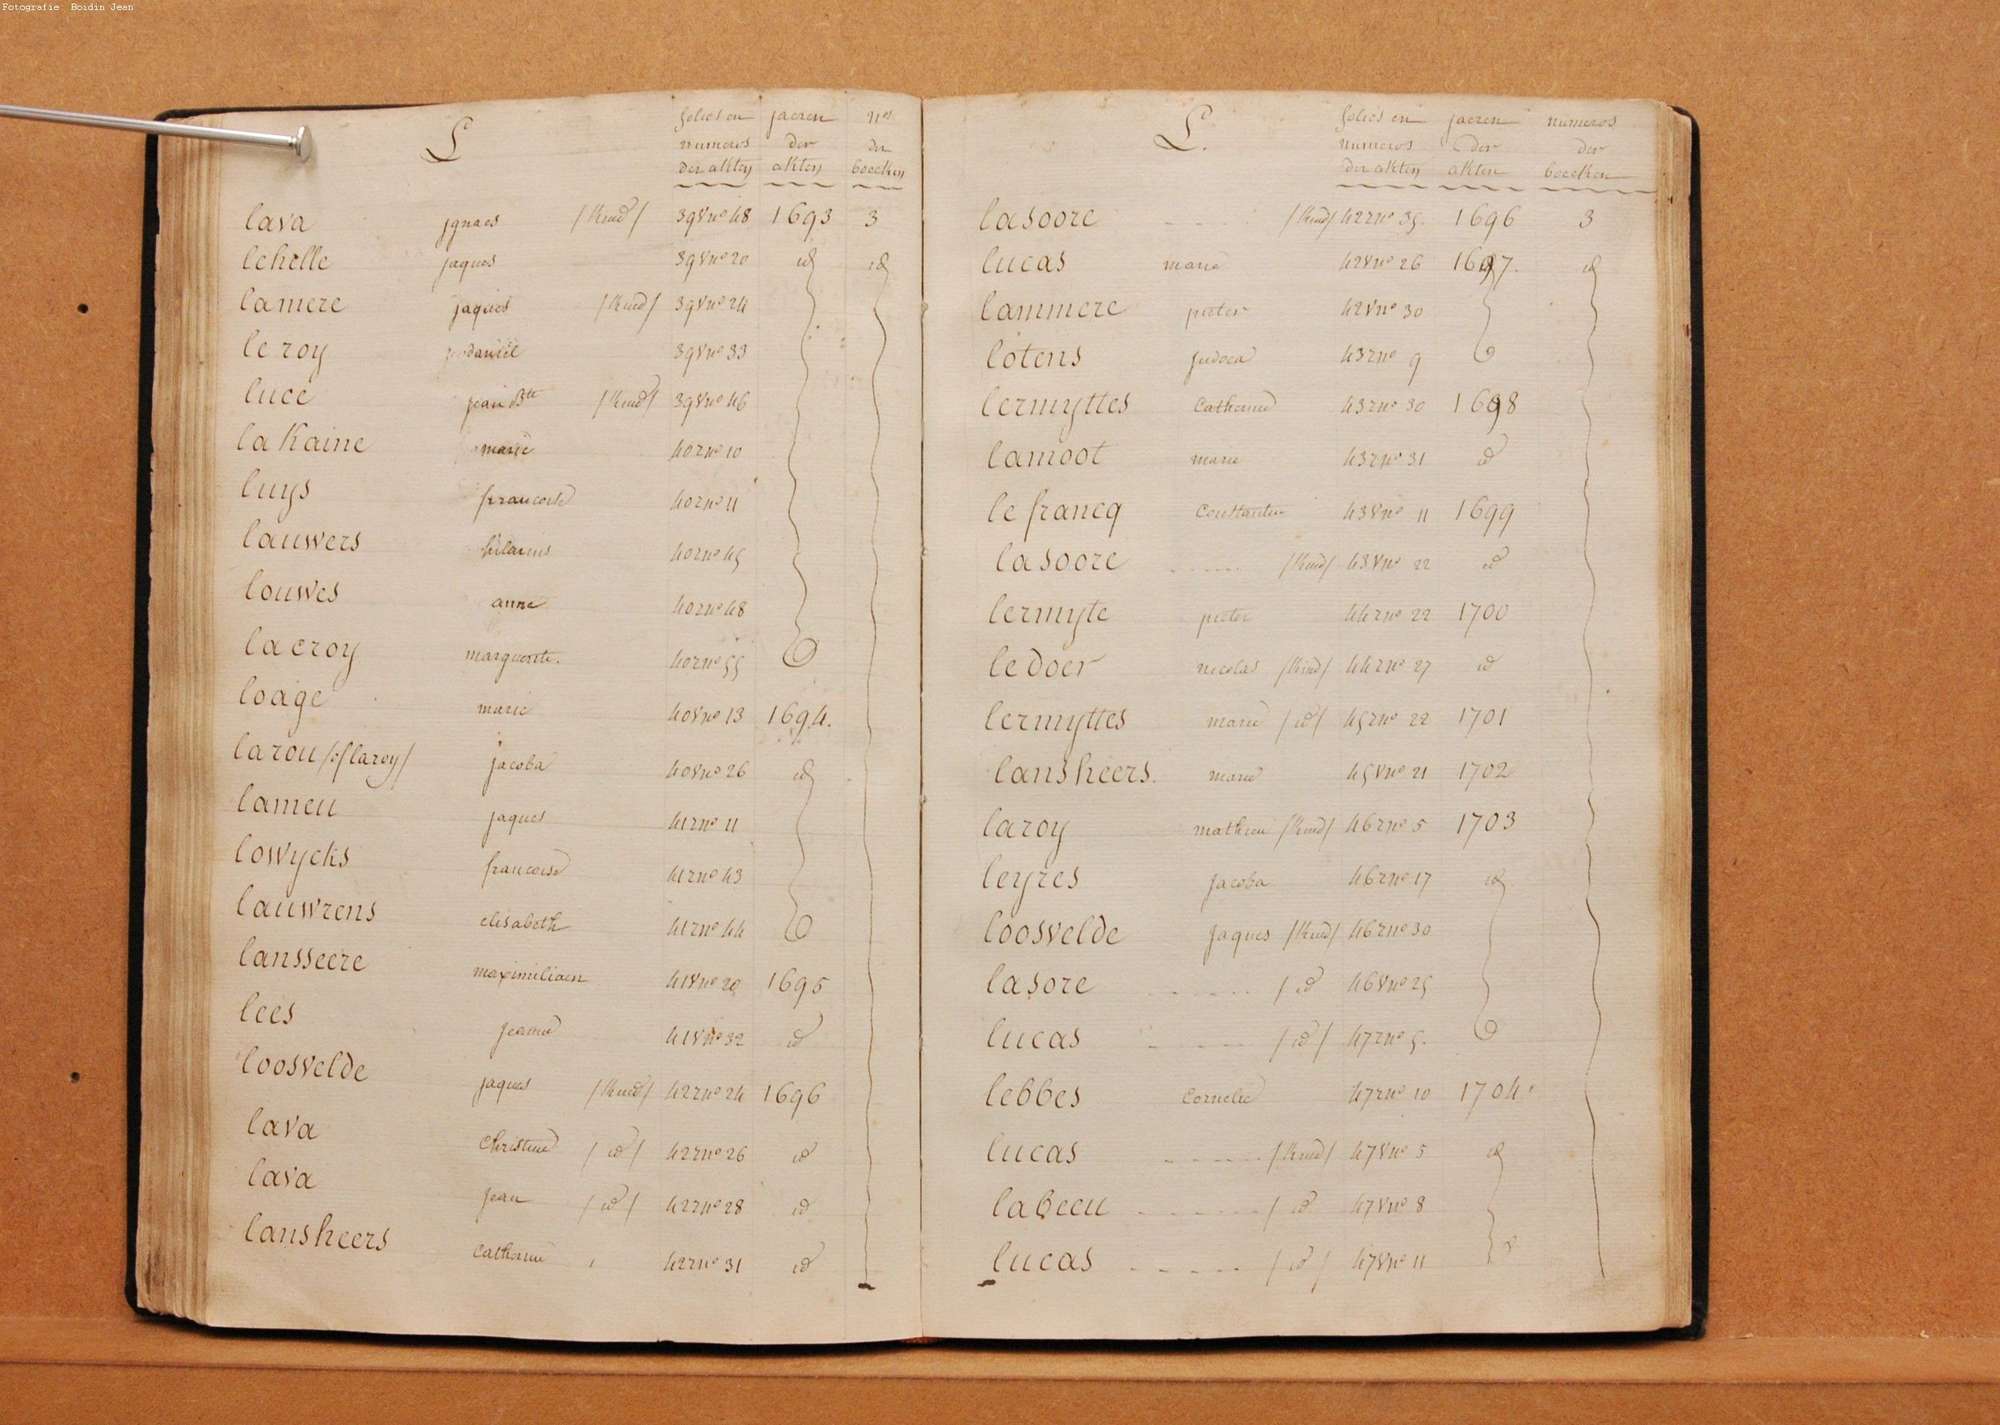 Fotografie Boidin Jean
L folios en jaeren nos
numeros der der
der akten akten boecken
lava jgnaes /kind/ 39v no 48 1693 3
lehelle jaques 39v no 20 id id
lamere jaques /kind/ 39v no 24
le roy daniel 39v no 33
luce jean Bte /kind/ 39v no 46
la Kaine marie 40r no 10
luys francoise 40r no 11
lauwers hilarius 40r no 45
louwes anne 40r no 48
lacroy marguerite. 40r no 55
loage marie 40v no 13 1694.
larou /of laroy/ jacoba 40v no 26 id
lameu jaques 41r no 11
lowycks francoise 41r no 43
lauwrens elisabeth 41r no 44
lansseere maximiliaen 41v no 20 1695
lees jeanne 41v no 32 id
loosvelde jaques /kind/ 42r no 24 1696
lava Christine /id/ 42r no 26 id
lava jean /id/ 42r no 28 id
lansheers Catherine 42r no 31 id
L. folios en jaeren numeros
numeros der der
der akten akten boecken
lasoore - - - - /kind/ 42r no 35. 1696 3
lucas marie 42v no 26 1697. id
lammere pieter 42v no 30
lotens judoca 43r no 9
lermyttes Catherine 43r no 30 1698
lamoot marie 43r no 31 id
le francq Constantin 43v no 11 1699
lasoore - - - - - /kind/ 43v no 22 id
lermyte pieter 44r no 22 1700
ledoer nicolas /kind/ 44r no 27 id
lermyttes marie /id/ 45r no 22 1701
lansheers. marie 45v no 21 1702
laroy mathieu /kind/ 46r no 5 1703
leyres jacoba 46r no 17 id
loosvelde jaques /kind/ 46r no 30
lasore - - - - - / id 46v no 25
lucas - - - - - /id/ 47r no 5.
lebbes Cornelie 47r no 10 1704
lucas - - - - - /kind/ 47v no 5 id
labeeu - - - - - - / id 47v no 8
lucas - - - - - /id/ 47v no 11